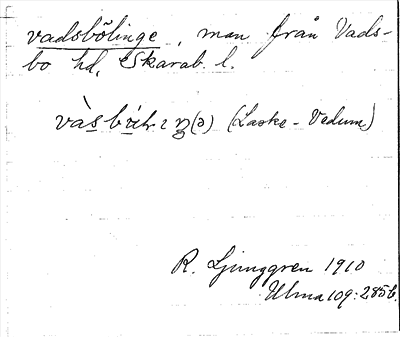 vadsbölinge, man från Vads-
bo hd, Skarab. l.
(Laske-Vedum)
R. Ljunggren 1910
Ulma 109:285 b.